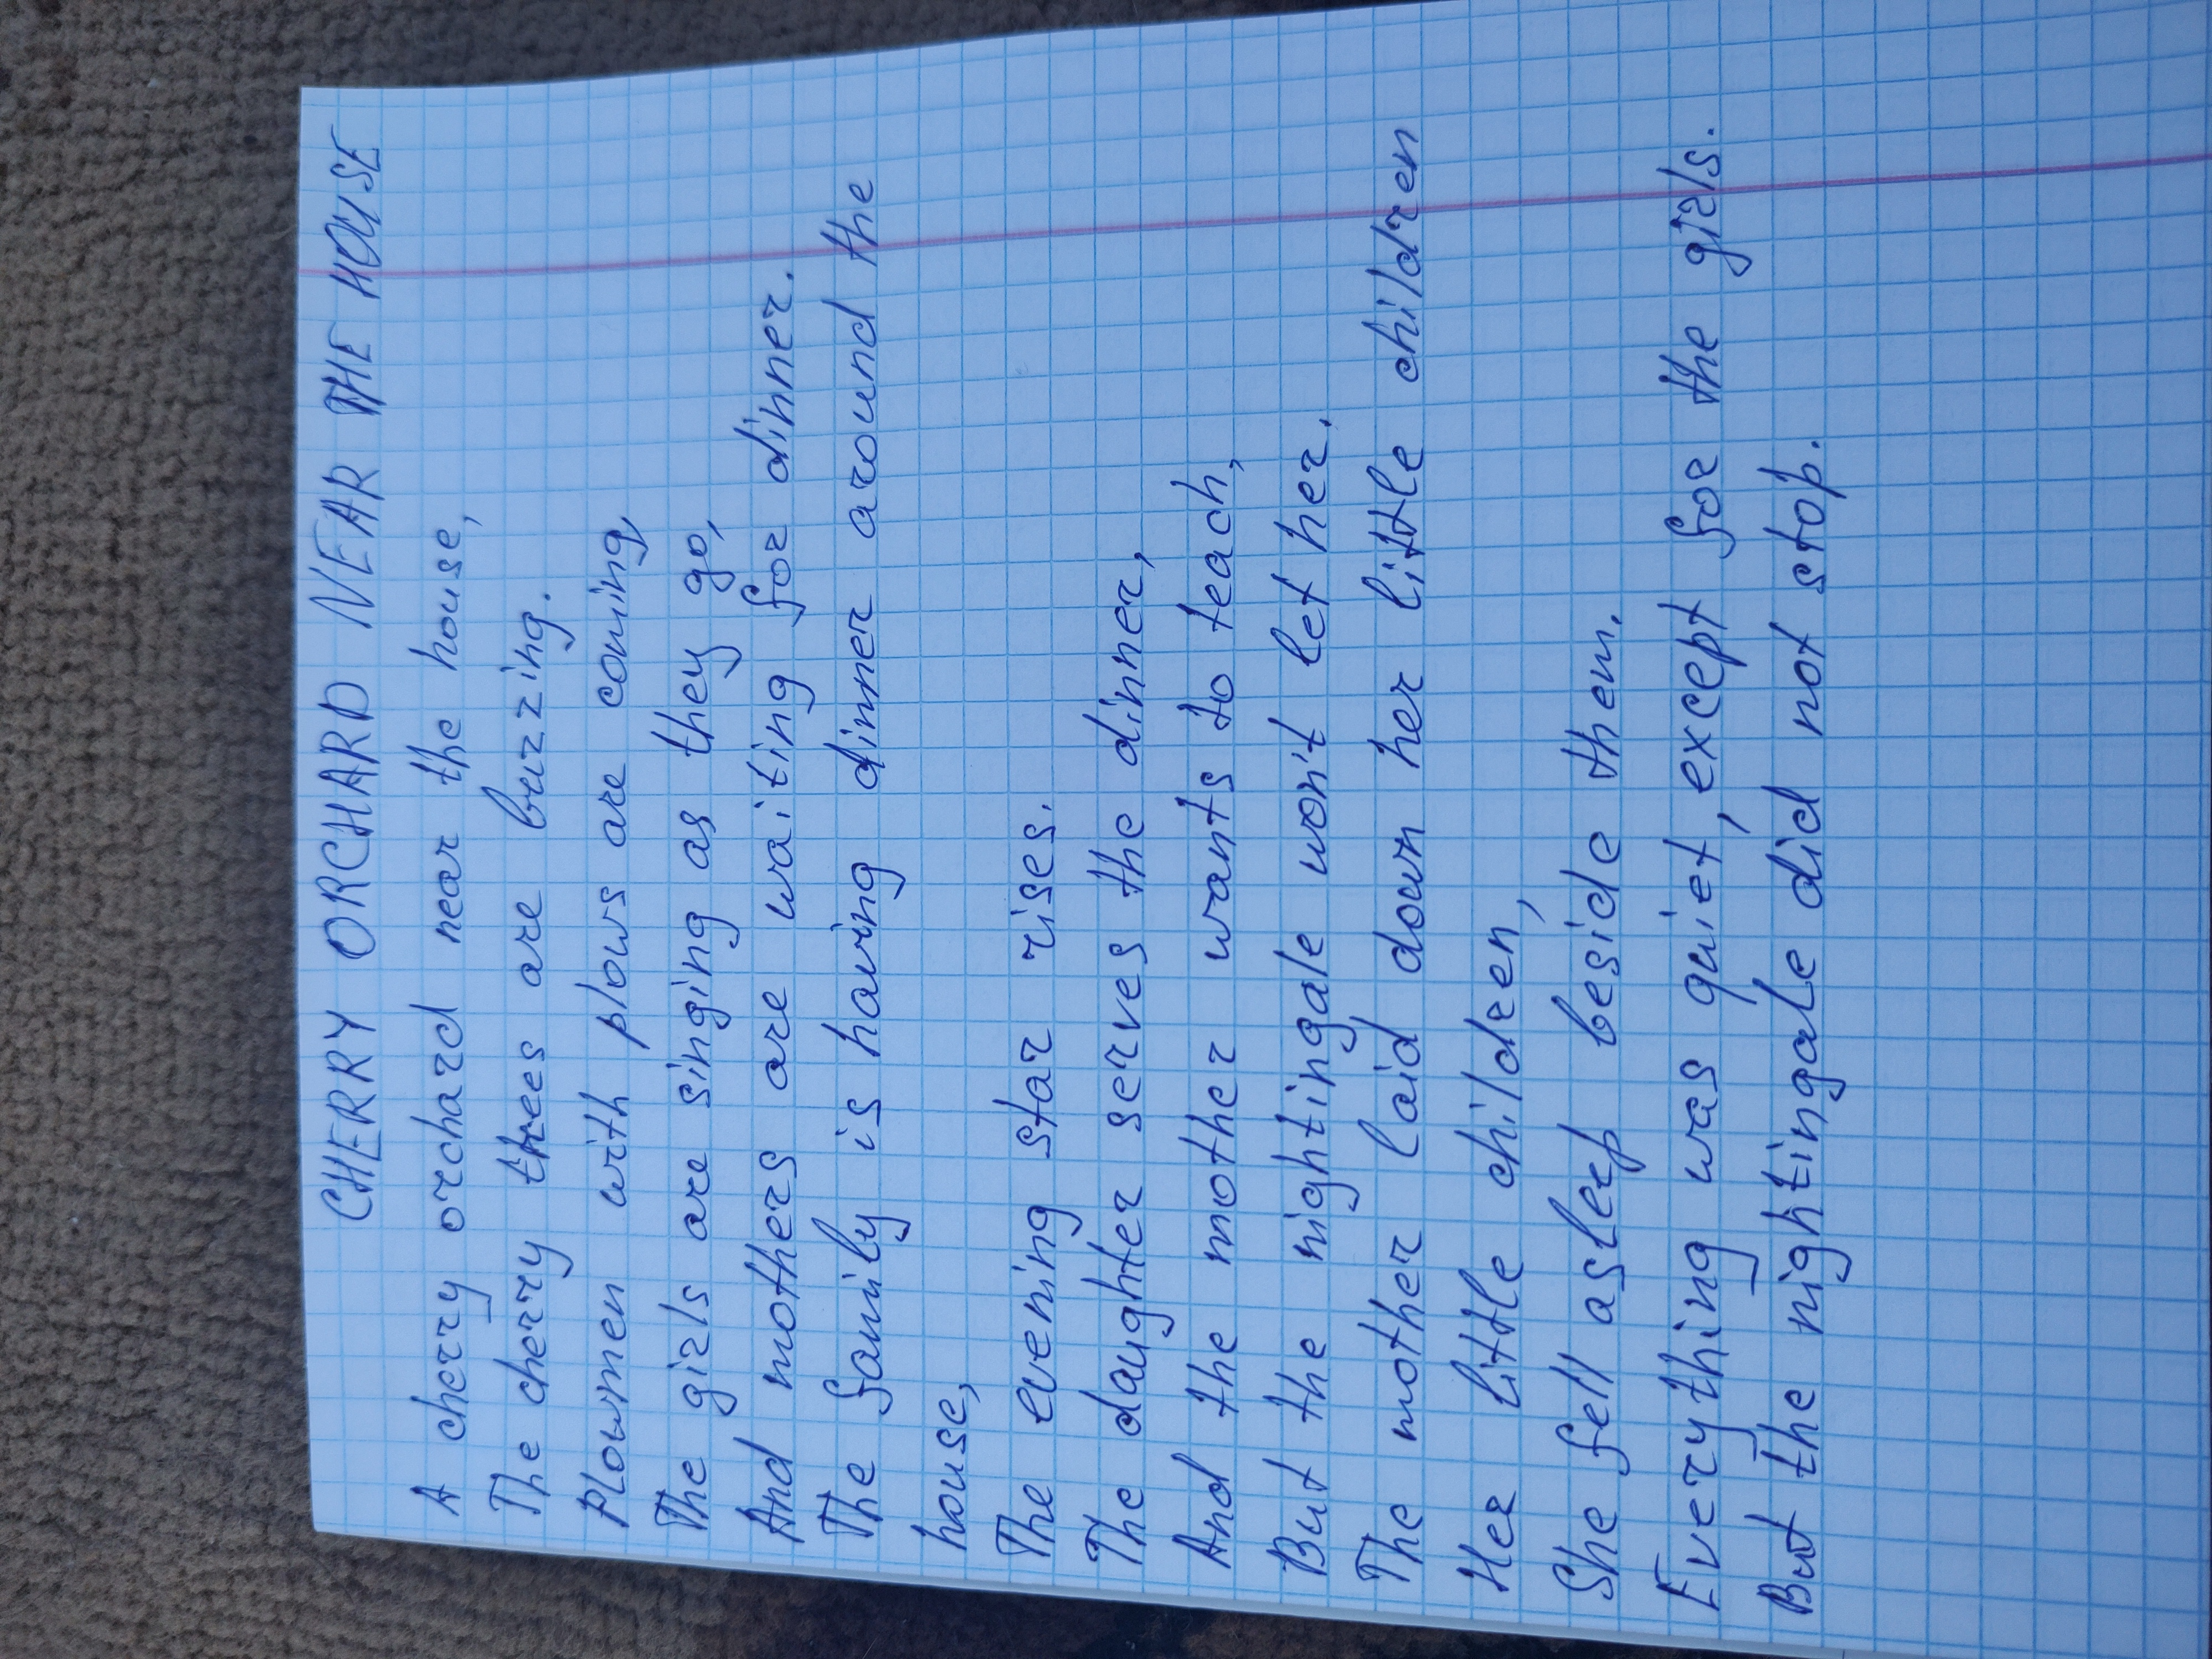 CHERRY ORCHARD NEAR THE HOUSE
A cherry orchard near the house,
The cherry trees are buzzing.
Plowmen with plows are coming,
The girls are singing as they go,
And mothers are waiting for dinner.
The family is having dinner around the
house,
The evening star rises.
The daughter serves the dinner,
And the mother wants to teach,
But the nightingale won't let her.
The mother laid down her little children
Her little children,
She fell asleep beside them.
Everything was quiet, except for the girls.
But the nightingale did not stop.